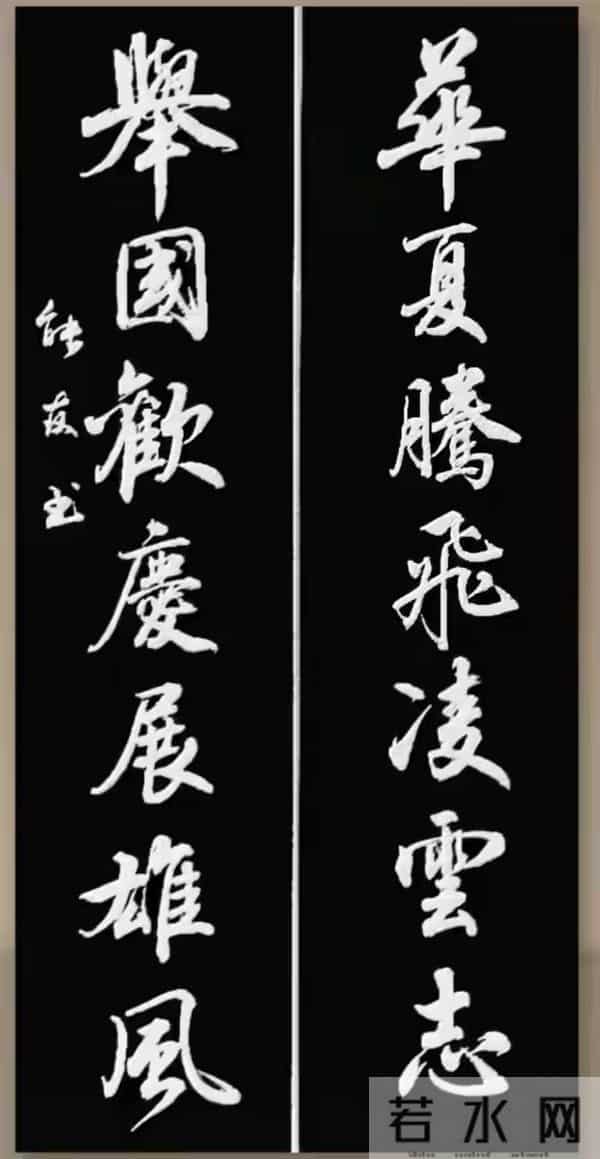 華夏騰飛凌雲志
舉國歡慶展雄風
能友书
若水网